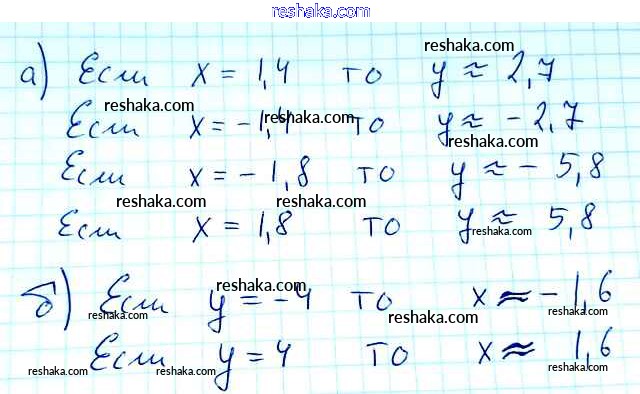 reshaka.com
а) Если x = 1,4 то y ≈ 2,7
reshaka.com
Если x = -1,4 то y ≈ -2,7
reshaka.com
reshaka.com
Если x = -1,8 то y ≈ - 5,8
reshaka.com
reshaka.com
Если x = 1,8 то y ≈ 5,8
reshaka.com
reshaka.com
б) Если y = -4 то x ≈ -1,6
reshaka.com
reshaka.com
reshaka.com
Если y = 4 то x ≈ 1,6
reshaka.com
reshaka.com
reshaka.com